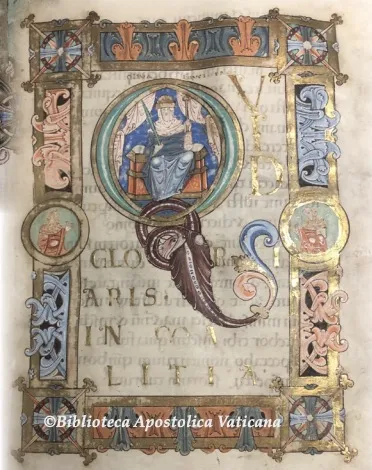 QVID
GLORI
ARIS
IN MA
LITIA
©Biblioteca Apostolica Vaticana